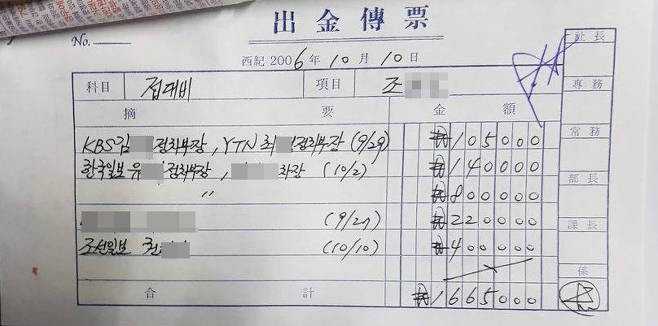 出金傳票
No.
西紀 2006年 10月 10日
社長
科目 접대비 項目 조
專務
摘要 金額
KBS김 정치부장, YTN 최 정치부장 (9/29) ₩105000
常務
한국일보 유 정치부장, 차장 (10/2) ₩140000
〃 ₩800000
部長
(9/27) ₩220000
課長
조선일보 (10/10) ₩400000
係
合計 ₩1665000